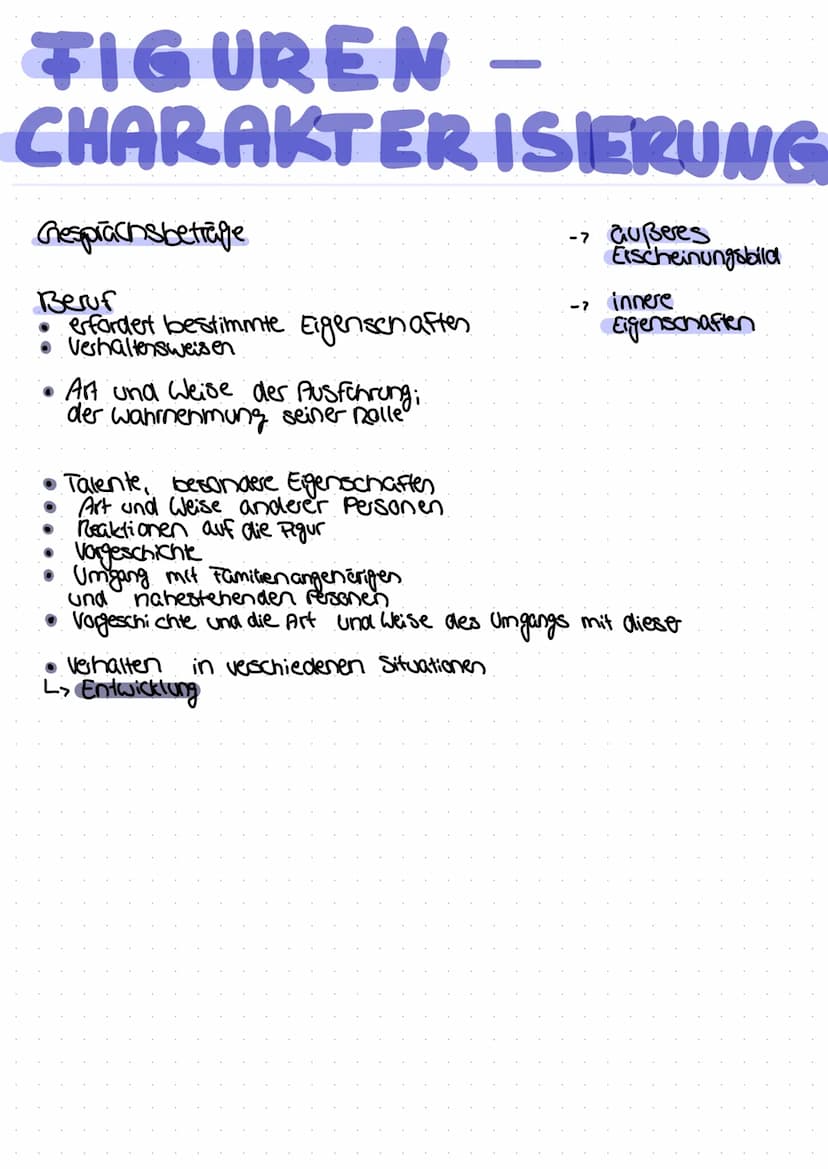 FIGUREN –
CHARAKTERISIERUNG
Gesprächsbeträge
-> äußeres
Erscheinungsbild
Beruf
• erfordert bestimmte Eigenschaften
• Verhaltensweisen
-> innere
Eigenschaften
• Art und Weise der Ausführung;
der Wahrnehmung seiner Rolle
• Talente, besondere Eigenschaften
• Art und Weise anderer Personen
• Reaktionen auf die Figur
• Vorgeschichte
• Umgang mit Familienangehörigen
und nahestehenden Personen
• Vorgeschichte und die Art und Weise des Umgangs mit dieser
• Verhalten in verschiedenen Situationen
↳ Entwicklung